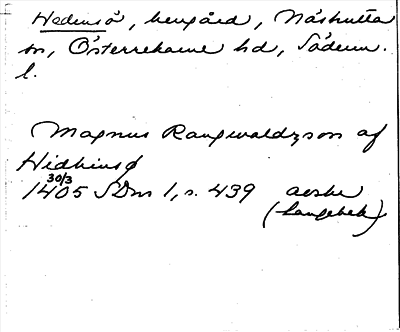 Hedensö, herrgård, Näshulta
sn, Österrekarne hd, Söderm.
l.
Magnus Rangwaldzson af
Hidhinsø
30/3
1405 SDns 1, s. 439 aeske
(Langebek)